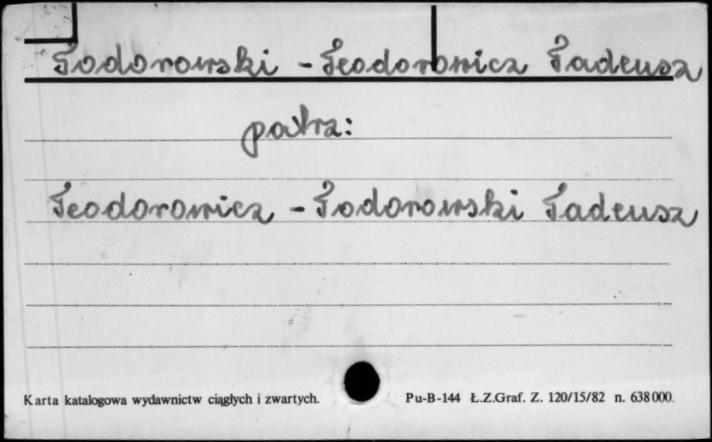 Todorowski - Teodorowicz Tadeusz
patrz:
Teodorowicz - Todorowski Tadeusz
Karta katalogowa wydawnictw ciągłych i zwartych. Pu-B-144 Ł.Z.Graf. Z. 120/15/82 n. 638000.